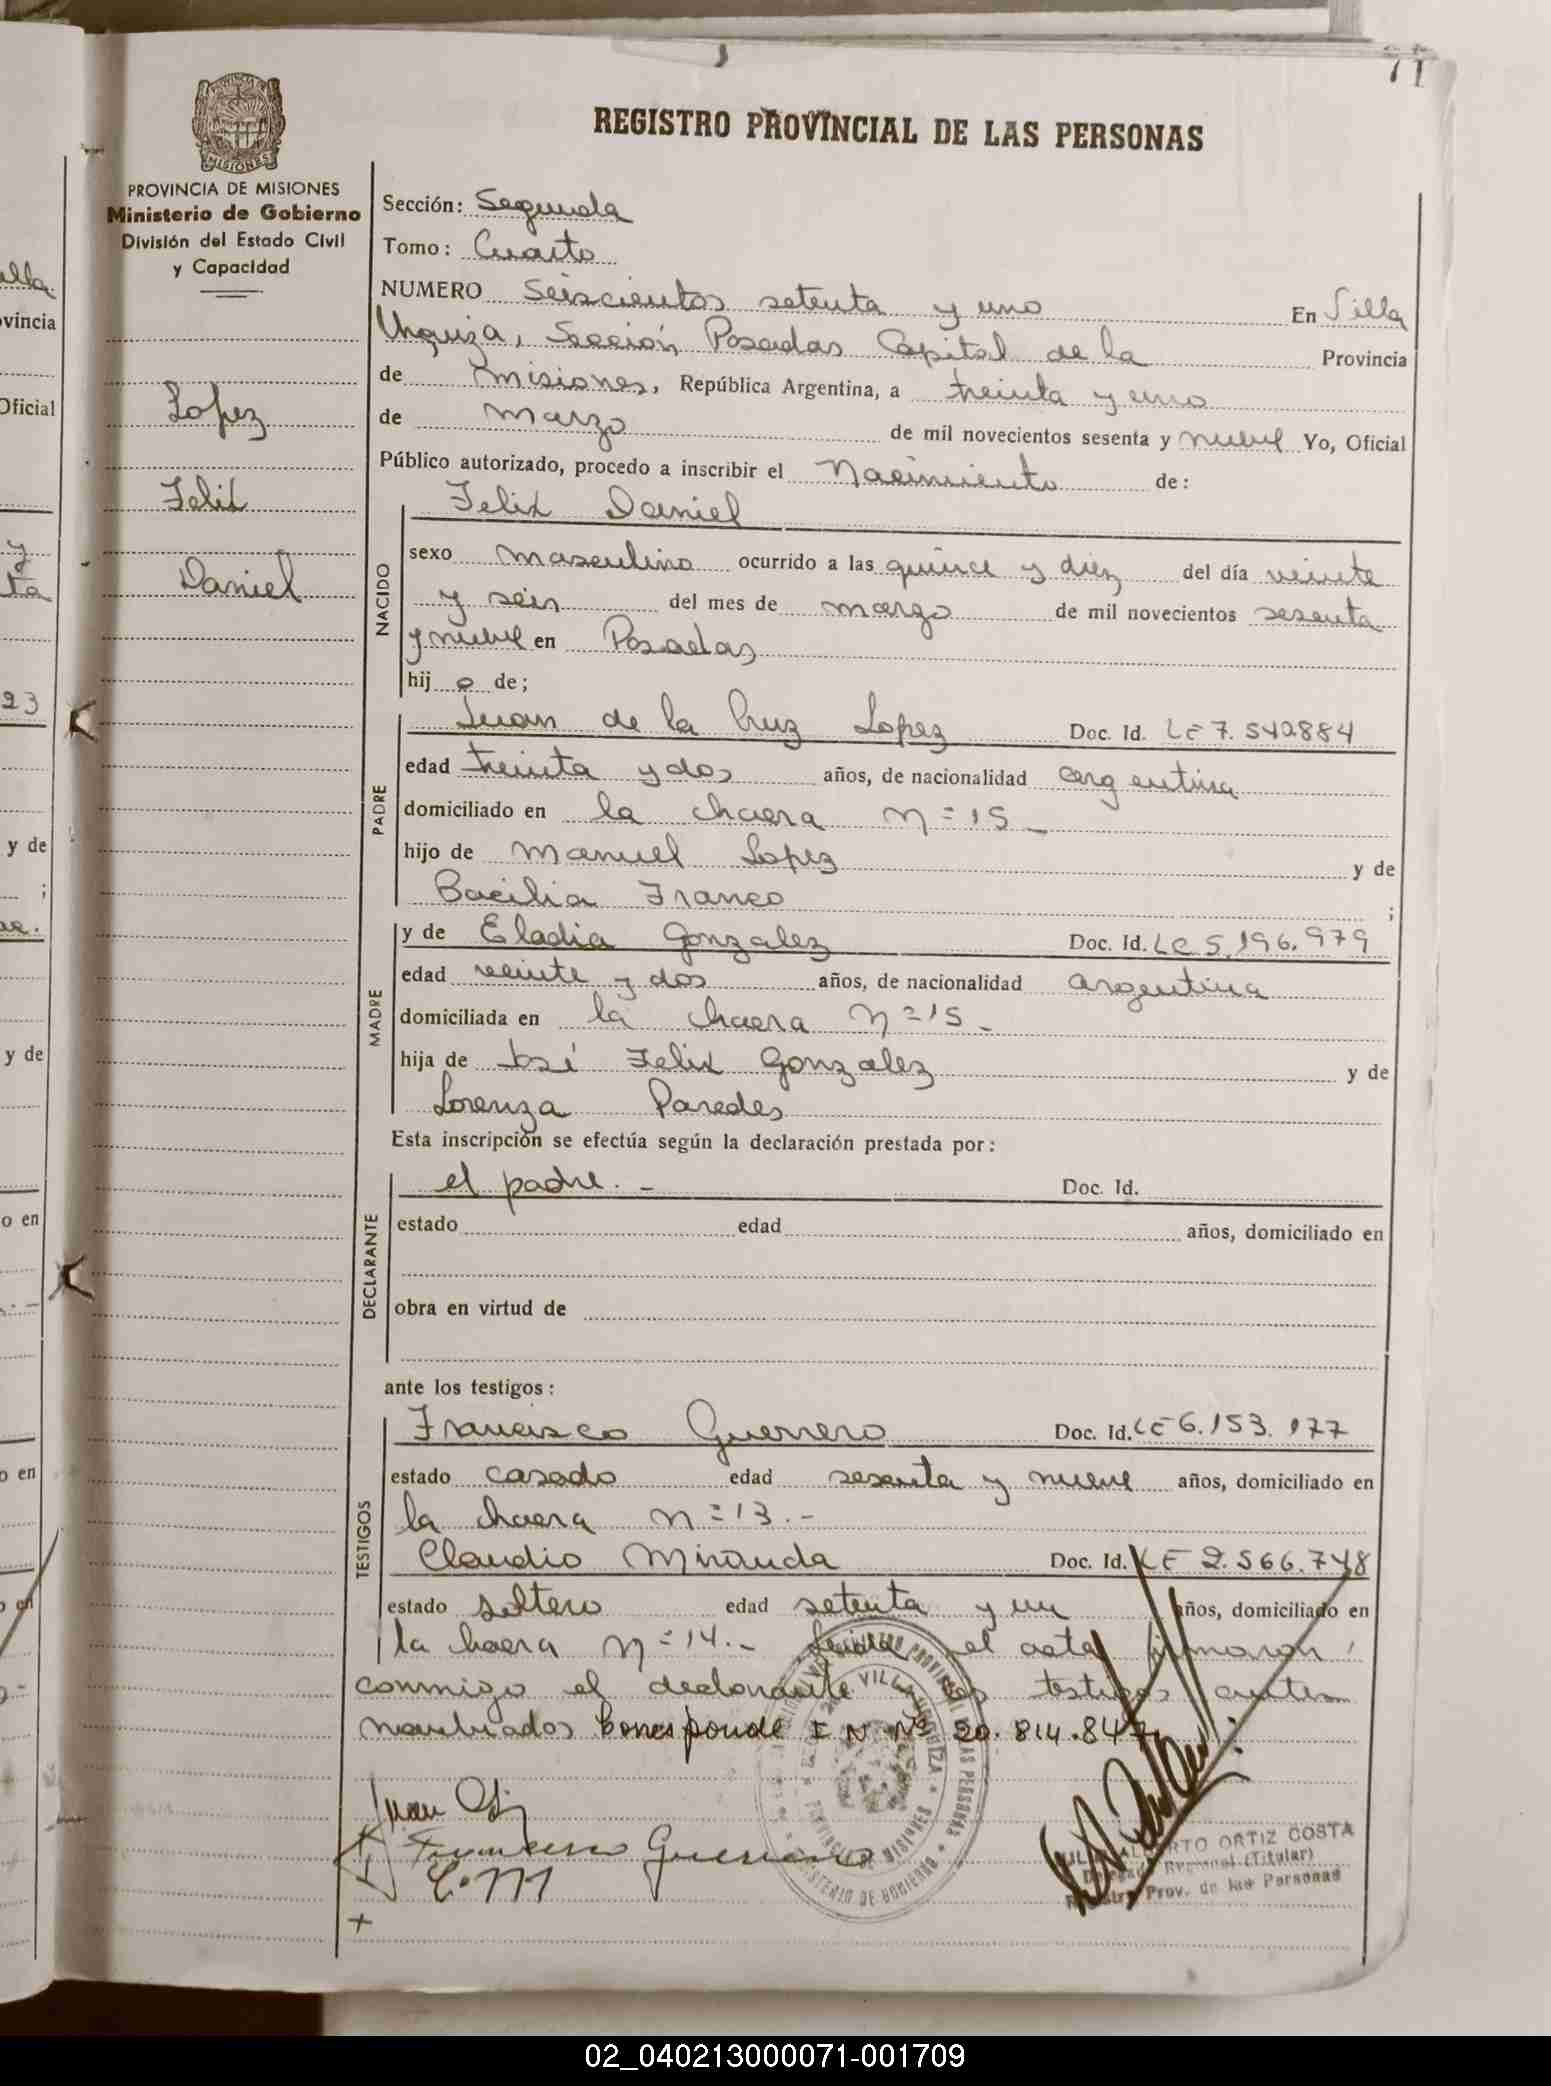 71
REGISTRO PROVINCIAL DE LAS PERSONAS
PROVINCIA DE MISIONES
Ministerio de Gobierno
División del Estado Civil
y Capacidad
Lopez
Felix
Daniel
Sección: Segunda
Tomo: Cuarto
NUMERO Seiscientos setenta y uno En Villa
Urquiza, Sección Posadas Capital de la Provincia
de Misiones, República Argentina, a treinta y uno
de marzo de mil novecientos sesenta y nueve Yo, Oficial
Público autorizado, procedo a inscribir el Nacimiento de:
Felix Daniel
NACIDO
sexo masculino ocurrido a las quince y diez del día veinte
y seis del mes de marzo de mil novecientos sesenta
y nueve en Posadas
hij o de;
PADRE
Juan de la Cruz Lopez Doc. Id. LE 7.542884
edad treinta y dos años, de nacionalidad argentina
domiciliado en la chacra n=15-
hijo de Manuel Lopez y de
Bacilia Franco ;
MADRE
y de Eladia Gonzalez Doc. Id. LC 5.196.979
edad veinte y dos años, de nacionalidad argentina
domiciliada en la chacra n=15-
hija de José Felix Gonzalez y de
Lorenza Paredes
Esta inscripción se efectúa según la declaración prestada por:
DECLARANTE
el padre.- Doc. Id.
estado edad años, domiciliado en
obra en virtud de
ante los testigos:
TESTIGOS
Francisco Guerrero Doc. Id. LE 6.153.177
estado casado edad sesenta y nueve años, domiciliado en
la chacra n=13.-
Claudio Miranda Doc. Id. LE 2.566.748
estado soltero edad setenta y un años, domiciliado en
la chacra n=14.- Leida el acta firmaron
conmigo el declarante y los testigos antes
nombrados Corresponde I N Nº 20.814.847
Juan
Francisco Guerrero
C.M
VILLA URQUIZA
MINISTERIO DE GOBIERNO
ALBERTO ORTIZ COSTA
Delegado Regional (Titular)
Registro Prov. de las Personas
02_040213000071-001709